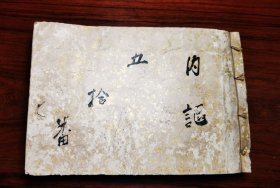 内謳
五
拾
番